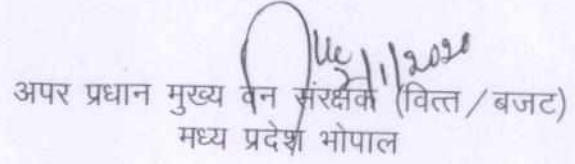 अपर प्रधान मुख्य वन संरक्षक (वित्त/बजट)
मध्य प्रदेश भोपाल